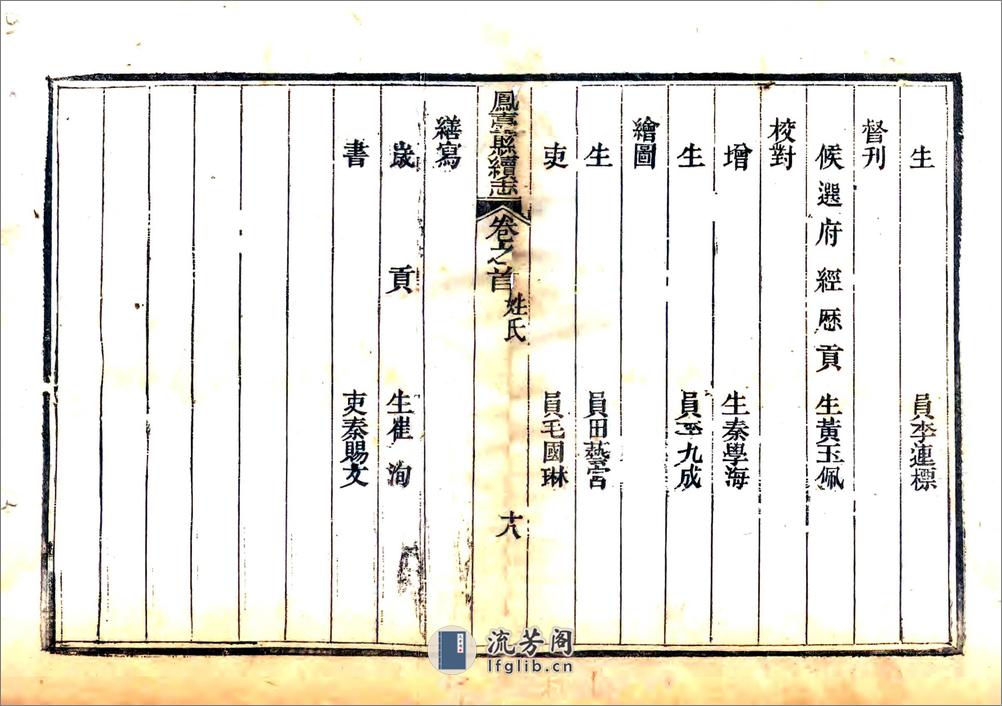 生員李連標
督刊
候選府經歷貢生黃玉佩
校對
增生秦學海
生員王九成
繪圖
生員田藝宮
吏員毛國琳
鳳臺縣續志 卷之首 姓氏 十八
繕寫
歲貢生崔洵
書吏秦賜文
流芳阁
lfglib.cn